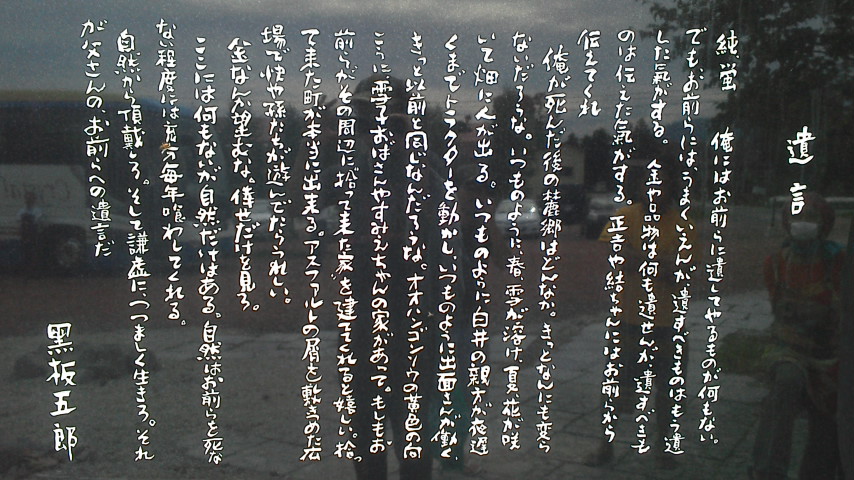 遺言
純 蛍　俺にはお前らに遺してやるものが何もない。
でもお前らには、うまくいえんが遺すべきものはもう遺
した気がする。金や品物は何も遺せんが遺すべきも
のは伝えた気がする。正吉や結ちゃんにはお前らから
伝えてくれ
俺が死んだ後の麓郷はどんなか。きっとなんにも変ら
ないだろうな。いつものように春、雪が溶け、夏、花が咲
いて畑に人が出る。いつものように白井の親方が夜遅
くまでトラクターを動かし、いつものように出面さんが働く。
きっと以前と同じなんだろうな。オオハンゴンソウの黄色の向
こうに雪子おばさんやすみえちゃんの家があって。もしもお
前らがその周辺に“拾って来た家”を建ててくれると嬉しい。拾っ
て来た町が本当に出来る。アスファルトの屑を敷きつめた広
場で快や孫たちが遊んでたらうれしい。
金なんか望むな。倖せだけを見ろ。
ここには何もないが自然だけはある。自然はお前らを死な
ない程度には充分毎年喰わしてくれる。
自然から頂戴しろ。そして謙虚に、つつましく生きろ。それ
が父さんの、お前らへの遺言だ
黒板五郎